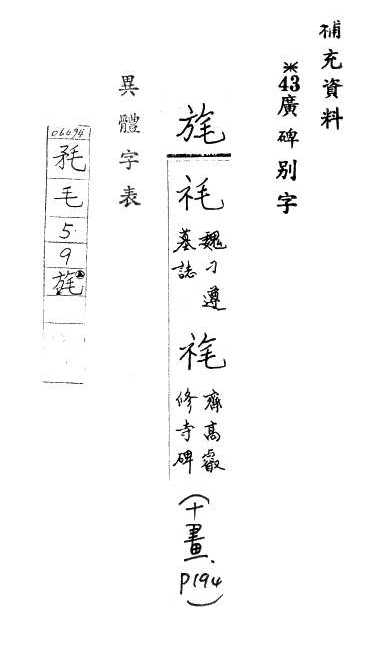 補充資料
※43廣碑別字
旄
䄟 魏刁遵墓誌
齊高叡修寺碑
(十畫、P194)
異體字表
06694
毛
5
9
旄